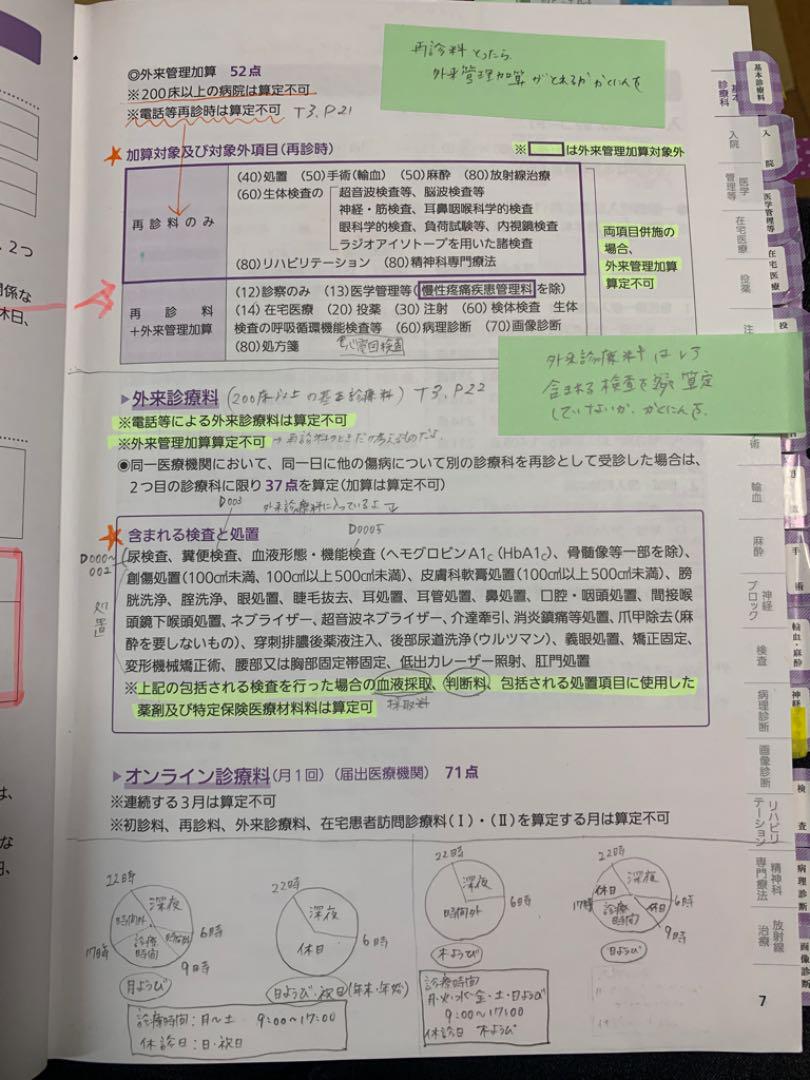 ◎外来管理加算 52点
※200床以上の病院は算定不可
※電話等再診時は算定不可 T3.P21
再診料とったら
外来管理加算がとれるかかくにんを
★加算対象及び対象外項目(再診時)
※ は外来管理加算対象外
再診料のみ
(40)処置 (50)手術(輸血) (50)麻酔 (80)放射線治療
(60)生体検査の
超音波検査等、脳波検査等
神経・筋検査、耳鼻咽喉科学的検査
眼科学的検査、負荷試験等、内視鏡検査
ラジオアイソトープを用いた諸検査
(80)リハビリテーション (80)精神科専門療法
両項目併施の
場合、
外来管理加算
算定不可
再診料
+外来管理加算
(12)診察のみ (13)医学管理等(慢性疼痛疾患管理料を除)
(14)在宅医療 (20)投薬 (30)注射 (60)検体検査 生体
検査の呼吸循環機能検査等 (60)病理診断 (70)画像診断
(80)処方箋
心電図検査
外来診療料は
含まれる検査を 算定
していないか、かくにんを。
▶外来診療料 (200床以上の基本診療料) T3.P22
※電話等による外来診療料は算定不可
※外来管理加算算定不可
◉同一医療機関において、同一日に他の傷病について別の診療科を再診として受診した場合は、
2つ目の診療科に限り37点を算定(加算は算定不可)
D003 外来診療料に入っているよ
★含まれる検査と処置
D0005
D000〜
002
処置
尿検査、糞便検査、血液形態・機能検査(ヘモグロビンA1c(HbA1c)、骨髄像等一部を除)、
創傷処置(100㎠未満、100㎠以上500㎠未満)、皮膚科軟膏処置(100㎠以上500㎠未満)、膀
胱洗浄、腟洗浄、眼処置、睫毛抜去、耳処置、耳管処置、鼻処置、口腔・咽頭処置、間接喉
頭鏡下喉頭処置、ネブライザー、超音波ネブライザー、介達牽引、消炎鎮痛等処置、爪甲除去(麻
酔を要しないもの)、穿刺排膿後薬液注入、後部尿道洗浄(ウルツマン)、義眼処置、矯正固定、
変形機械矯正術、腰部又は胸部固定帯固定、低出力レーザー照射、肛門処置
※上記の包括される検査を行った場合の血液採取、判断料、包括される処置項目に使用した
薬剤及び特定保険医療材料料は算定可
採取料
▶オンライン診療料(月1回)(届出医療機関) 71点
※連続する3月は算定不可
※初診料、再診料、外来診療料、在宅患者訪問診療料(Ⅰ)・(Ⅱ)を算定する月は算定不可
22時
深夜
時間外
時間外
診療
時間
17時
6時
9時
月ようび
22時
深夜
休日
6時
日ようび・祝日(年末・年始)
診療時間:月〜土 9:00〜17:00
休診日:日・祝日
22時
深夜
時間外
6時
木ようび
診療時間
月・火・水・金・土・日ようび
9:00〜17:00
休診日 木ようび
22時
深夜
休日
休日
診療
時間
17時
6時
9時
日ようび
7
基本
診療科
入院
医学
管理等
在宅医療
投薬
注
術
輸血
麻酔
神経
ブロック
検査
病理診断
画像診断
リハビリ
テーション
精神科
専門療法
放射線
治療
基本診療料
入院
医学管理等
在宅医療
投
手術
輸血・麻酔
神経
検査
病理診断
画像診断
2つ
関係な
休日、